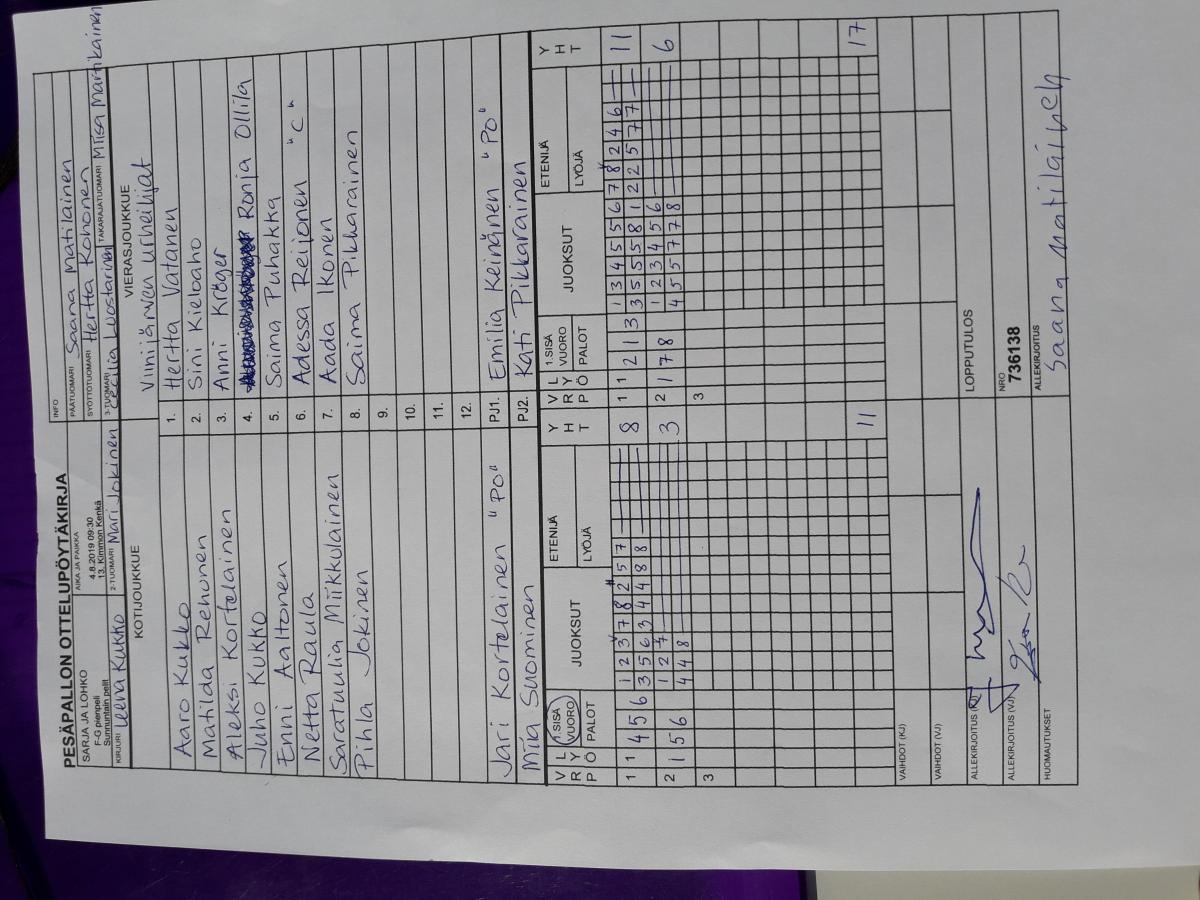 PESÄPALLON OTTELUPÖYTÄKIRJA
SARJA JA LOHKO
F-G pienpeli
Sunnuntain pelit
AIKA JA PAIKKA
4.8.2019 09:30
13. Kimmon Kenkä
INFO
PÄÄTUOMARI Saana Matilainen
SYÖTTÖTUOMARI Hertta Kohonen
KIRJURI Leena Kukko
2-TUOMARI Mari Jokinen
3-TUOMARI Cecilia Luostarinen
TAKARAJATUOMARI Miisa Martikainen
KOTIJOUKKUE
VIERASJOUKKUE
Viinijärven urheilijat
Aaro Kukko 1. Hertta Vatanen
Matilda Rehonen 2. Sini Kieloaho
Aleksi Kortelainen 3. Anni Kröger
Juho Kukko 4. Ronja Ollila
Enni Aaltonen 5. Saima Puhakka
Netta Raula 6. Adessa Reijonen "C"
Saratuulia Miikkulainen 7. Aada Ikonen
Pihla Jokinen 8. Saima Pikkarainen
9.
10.
11.
12.
Jari Kortelainen "PO" PJ1. Emilia Keinänen "PO"
Miia Suominen PJ2. Kati Pikkarainen
V R P L Y Ö 1.SISÄ VUORO PALOT JUOKSUT ETENIJÄ LYÖJÄ Y H T V R P L Y Ö 1.SISÄ VUORO PALOT JUOKSUT ETENIJÄ LYÖJÄ Y H T
1 1 4 5 6 1 2 3 7 8 2 5 7 8 1 1 2 1 3 1 3 4 5 5 6 7 8 2 4 6 11
3 5 6 3 4 4 8 8 3 5 5 5 8 1 2 2 5 7 7
2 1 5 6 1 2 7 3 2 1 7 8 1 2 3 4 5 6 6
4 4 8 4 5 5 7 7 8
3 3
11 17
VAIHDOT (KJ)
VAIHDOT (VJ)
ALLEKIRJOITUS (KJ)
LOPPUTULOS
ALLEKIRJOITUS (VJ)
NRO
736138
HUOMAUTUKSET
ALLEKIRJOITUS
Saana Matilainen